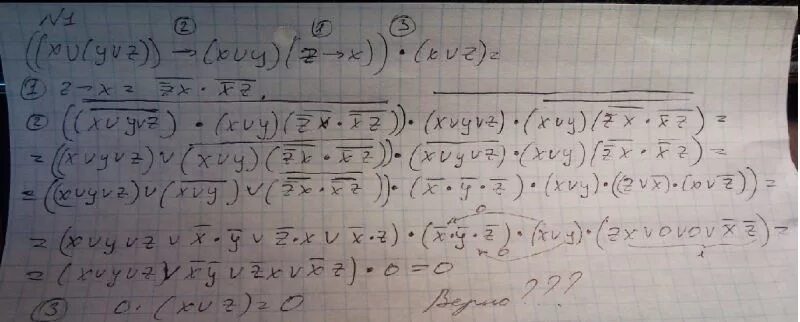 N1
② ① ③
((x∪(y∪z)) → (x∪y)(z→x)) · (x∪z)=
① z→x = \overline{\overline{z}x} · \overline{\overline{x}z}.
② ((\overline{x∪y∪z}) · (x∪y)(\overline{\overline{z}x} · \overline{\overline{x}z})) · (x∪y∪z) · (x∪y)(\overline{\overline{z}x} · \overline{\overline{x}z}) =
= ((x∪y∪z)∪(\overline{x∪y)(\overline{\overline{z}x} · \overline{\overline{x}z}})) · (\overline{x∪y∪z}) · (x∪y)(\overline{\overline{z}x} · \overline{\overline{x}z}) =
= ((x∪y∪z)∪(\overline{x∪y})∪(\overline{\overline{\overline{z}x} · \overline{\overline{x}z}})) · (\overline{x} · \overline{y} · \overline{z}) · (x∪y) · ((z∪\overline{x}) · (x∪\overline{z})) =
= (x∪y∪z∪\overline{x}·\overline{y}∪\overline{z}·x∪\overline{x}·z) · (\overline{x}·\overline{y}·\overline{z}) · (x∪y) · (zx∪0∪0∪\overline{x}\overline{z}) =
= (x∪y∪z)∪\overline{x}\overline{y}∪zx∪\overline{x}z) · 0 = 0
③ 0 · (x∪z) = 0 Верно???